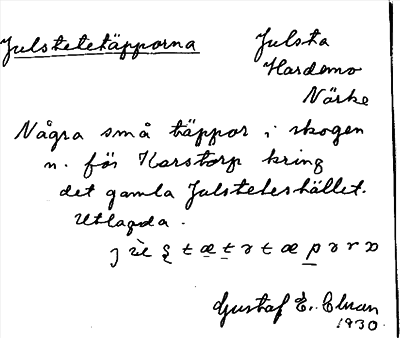 Julstetetäpporna
Julsta
Hardemo
Närke
Några små täppor i skogen
n. för Harstorp kring
det gamla Julsteteshället.
Utlagda.
Gustaf E.
1930.